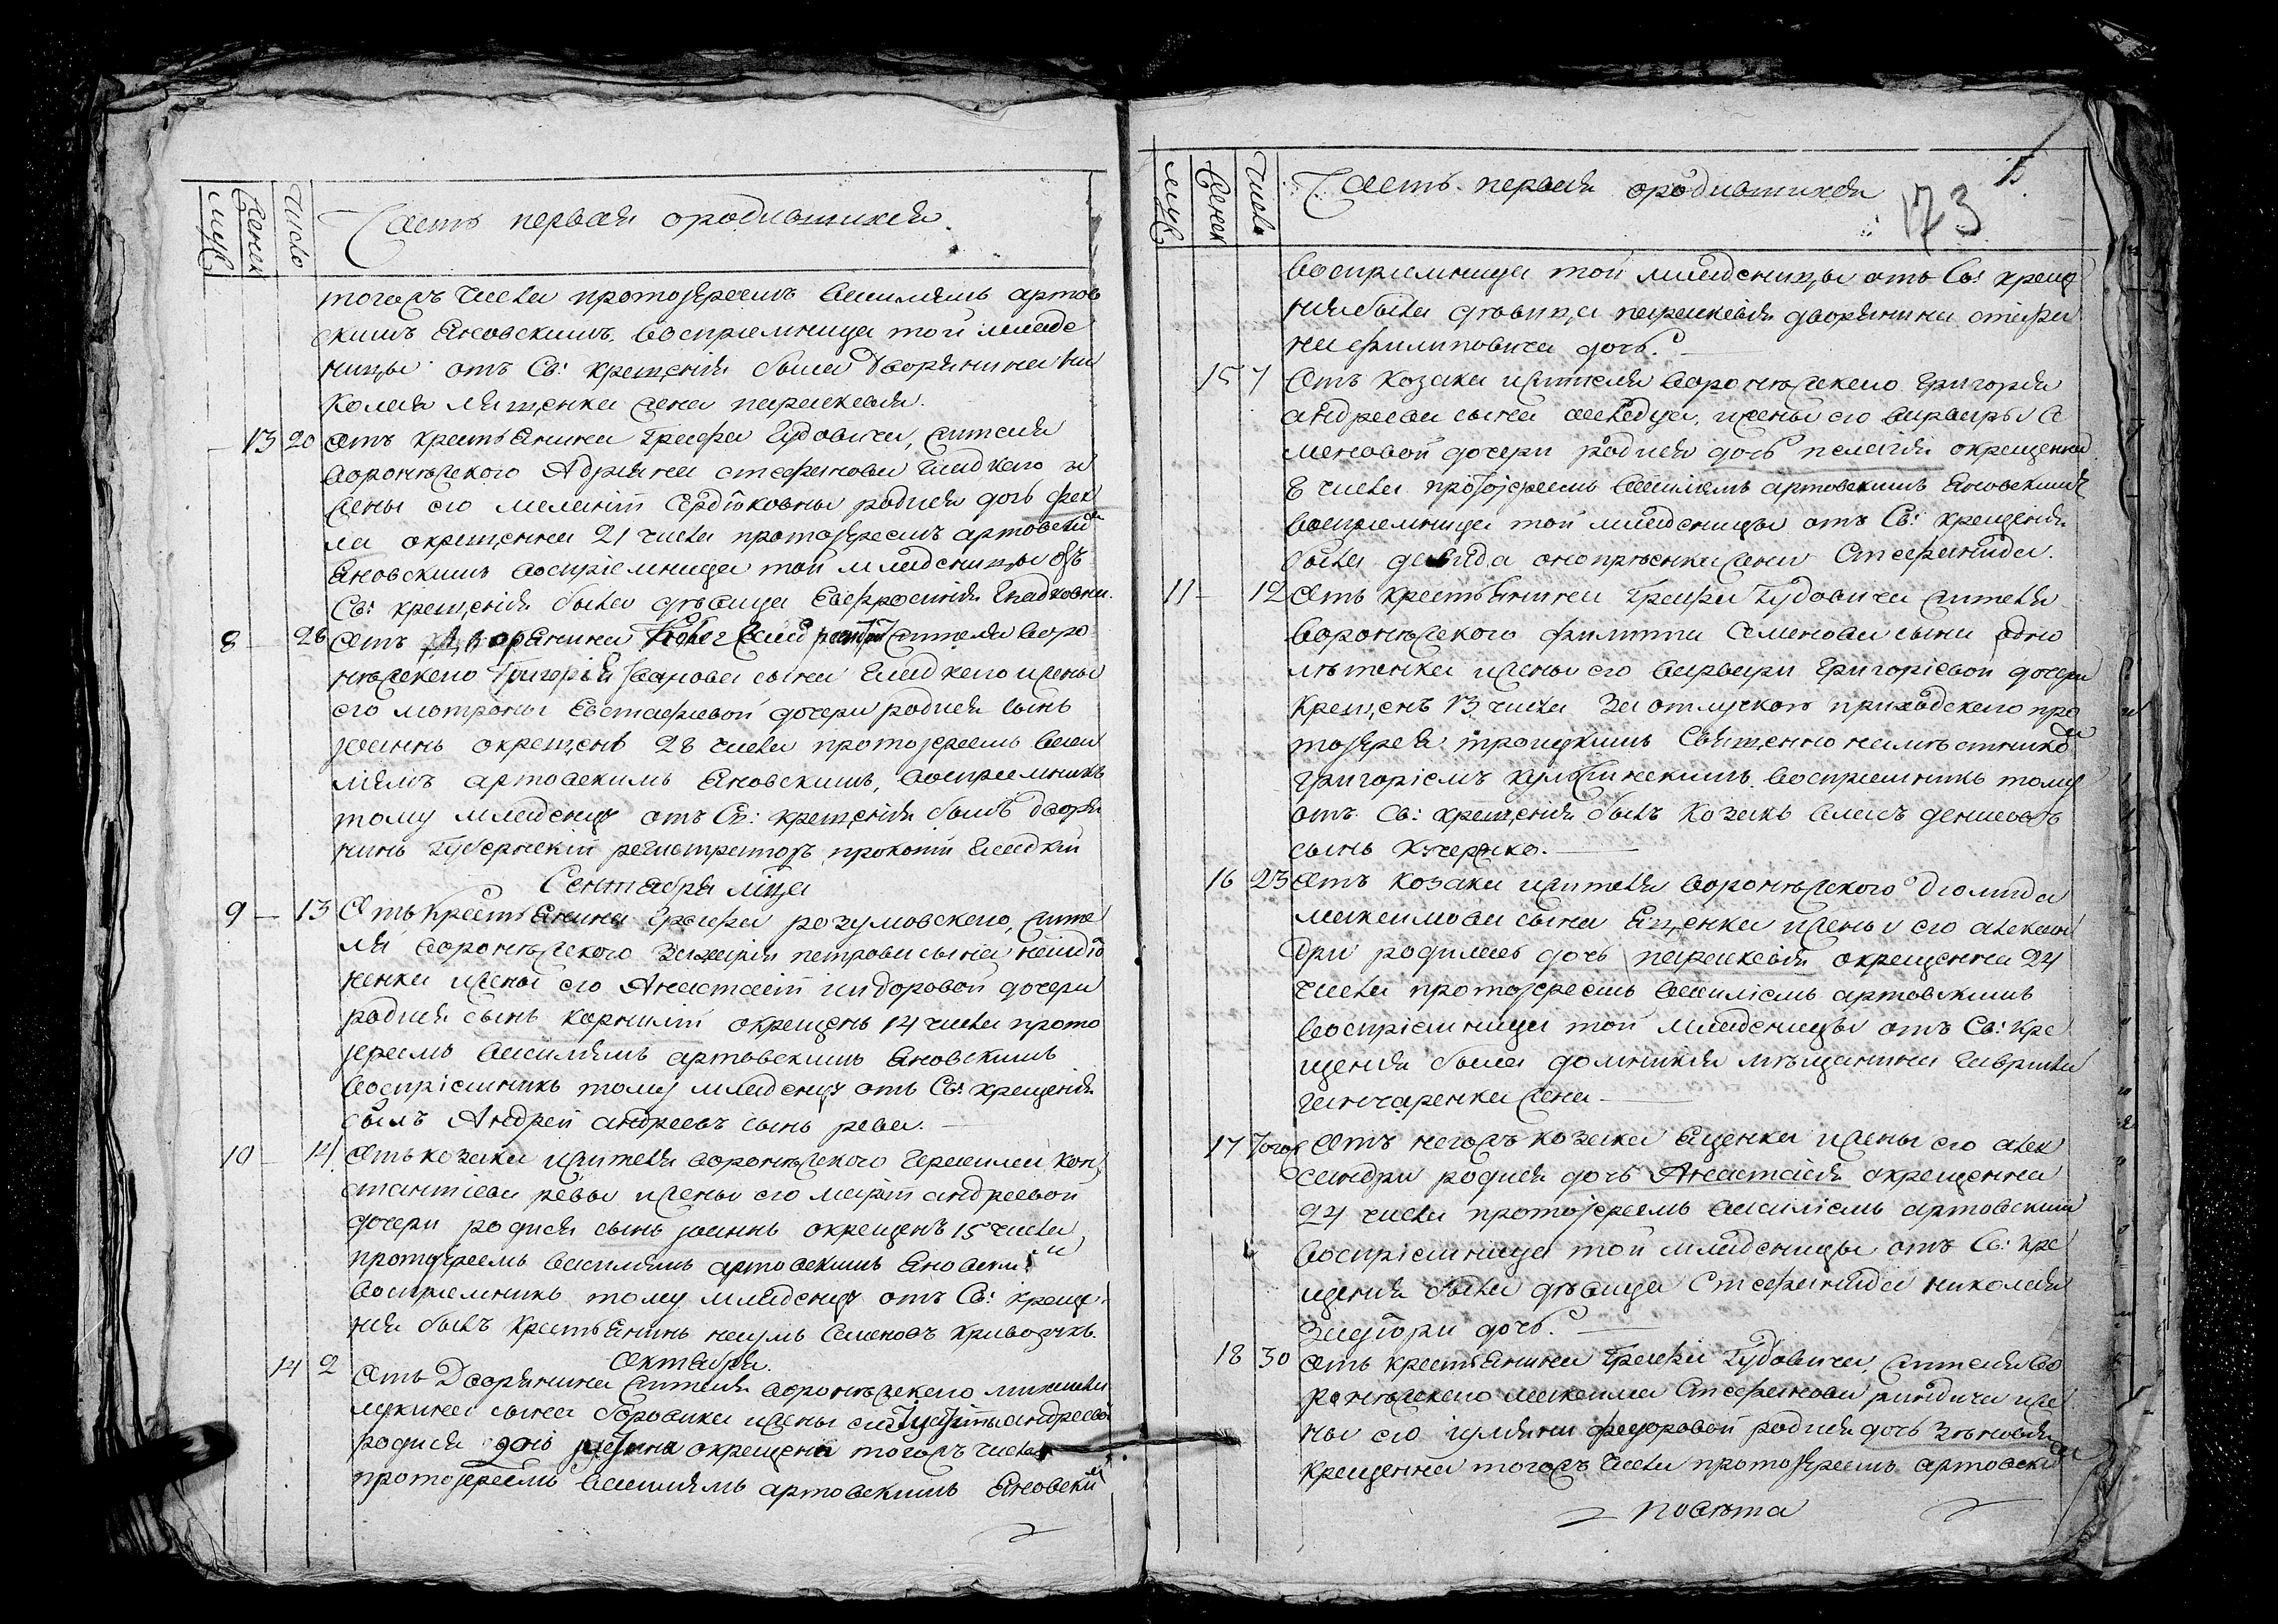 муж
женск
число
Часть первая ородившихся
тогожъ числа протоіереемъ василиемъ артов
скимъ яновскимъ. восприемница той младе
ницы отъ Св: крещенія была дворянина ни
колая лященка жена параскевия.
13 20 Отъ крестьянина Графа Гудовича, жителя
воронѣжского Адриана стефанова гладкаго ж
жены его Сердюковны родися дочь фек
ла окрещенна 21 числа протоіереемъ артовски
яновскимъ восприемница той младеницы отъ
Св: крещенія была дѣвица Евфросинія Гладковна.
8 26 Отъ дворянина жителя воро
нѣжскаго Григорія Іванова сына Гладкаго и жены
его матроны Евстафиевой дочери родися сынъ
іоаннъ окрещенъ 28 числа протоіереемъ васи
лиемъ артовскимъ яновскимъ, восприемникъ
тому младенцу отъ Св: крещенія былъ дворя
нинъ Губернскій регистраторъ прокопій гладкій
Сентября мца
9 13 Отъ крестьянина Графа розумовского, жите
ля воронѣжского захаріи петрова сына
ненка и жены его Анастасіи сидоровой дочери
родися сынъ корнилій окрещенъ 14 числа прото
іереемъ василиемъ артовскимъ яновскимъ
восприемникъ тому младенцу отъ Св: крещенія
былъ Андрей андреевъ сынъ рева.
10 14 Отъ козака и жителя воронѣжского герасима кон
стантиева ревы и жены его маріи андреевой
дочери родися сынъ іоаннъ окрещенъ 15 числа
протоіереемъ василиемъ артовскимъ яновски
восприемникъ тому младенцу отъ Св: креще
ния былъ крестьянинъ наумъ Семеновъ
Октября.
14 2 Отъ Дворянина жителя воронѣжскаго михаила
лукина сына боровика и жены его андреевой
родися дочь окрещена тогожъ числа
протоіереемъ василиемъ артовскимъ яновски
муж
женск
число
Часть первая ородившихся
173
восприемница той младеницы отъ Св: креще
ния была дѣвица параскевия дворянина стефа
на филиповича дочь.
15 7 Отъ козака и жителя воронѣжскаго григория
андреева сына и жены его варвары Се
меновой дочери родися дочь пелагия окрещенна
8 числа протоіереемъ василиемъ артовскимъ яновскимъ
восприемница той младеницы отъ Св: крещения
была давида онопрѣенка жена Стефанида.
11 12 Отъ крестьянина Графа Гудовича жителя
воронѣжского филиппа Семенова сына одно
лѣтенка и жены его варвари григоріевой дочери
крещенъ 13 числа За отлучкою приходскаго про
тоіерея троицкимъ Священно намѣстнико
григоріемъ восприемникъ тому
отъ Св: крещенія былъ козакъ денисовъ
сынъ кучерско.
16 23 Отъ козака и жителя воронѣжского Диомида
максимова сына Яценка и жены его алексан
дри родилась дочь параскевія окрещенна 24
числа протоіереемъ василіемъ артовскимъ
восприемница той младеницы отъ Св: кре
щения была домникия мѣщанина гаврила
гончаренка жена
17 Того Отъ негожъ козака Яценка и жены его алек
сандри родися дочь Анастасия окрещенна
24 числа протоіереемъ василіемъ артовским
восприемница той младеницы отъ Св: кре
щения была дѣвица Стефанида николая
дочь.
18 30 Отъ крестьянина Графа Гудовича, жителя во
ронѣжскаго максима Стефанова и же
ны его іулияни федоровой родися дочь Зѣновия
крещенна тогожъ числа протоіереемъ артовски
повѣта